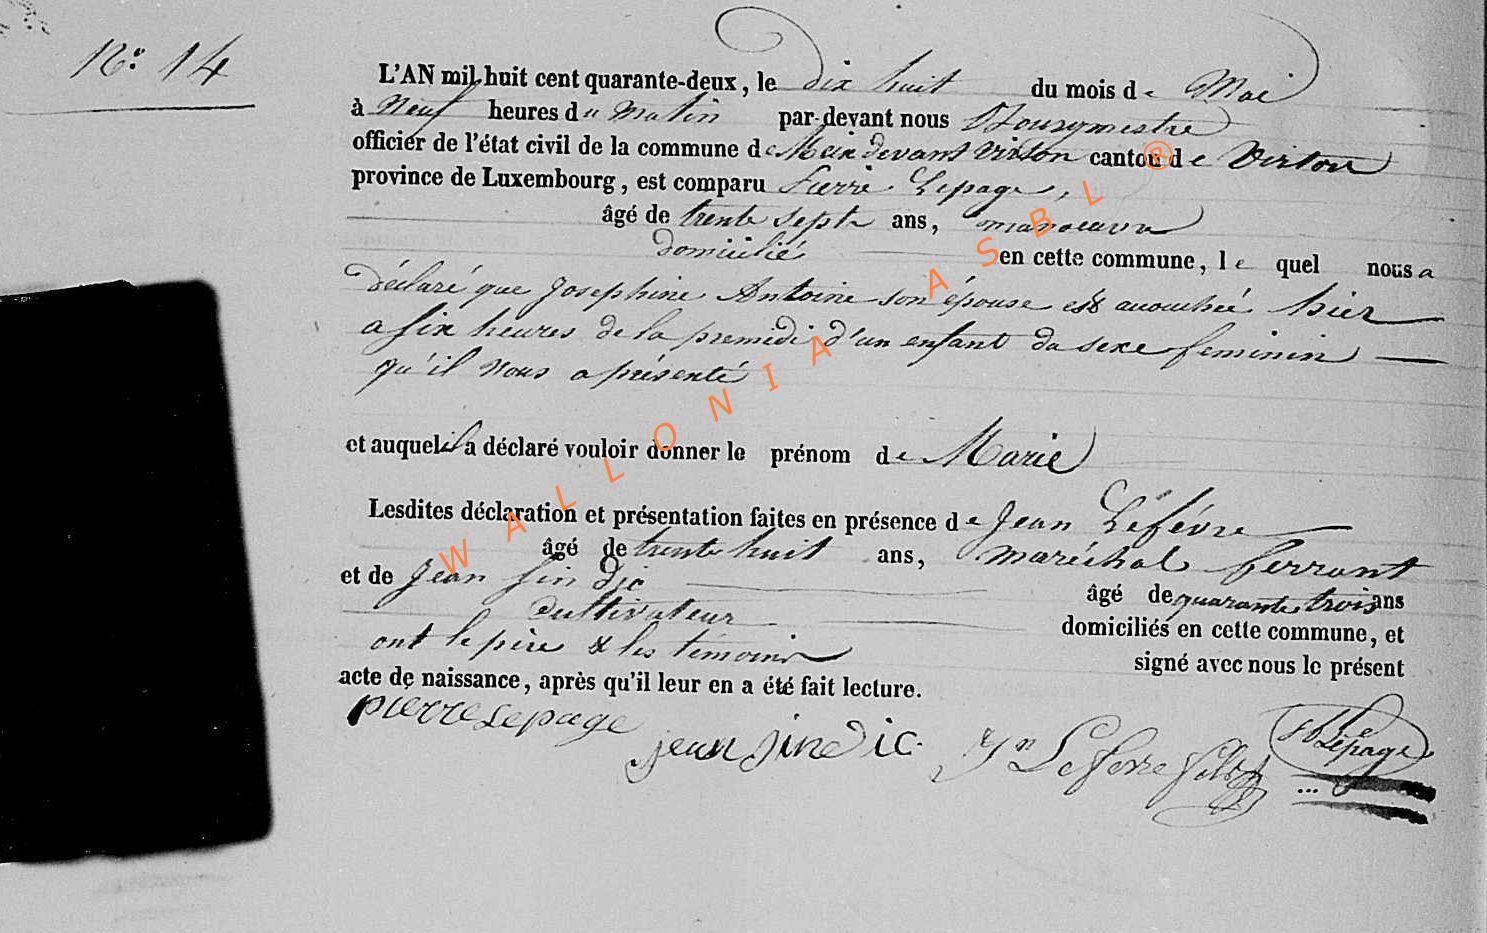 N.° 14
L'AN mil huit cent quarante-deux, le dix huit du mois de Mai
à Neuf heures du Matin par-devant nous Bourgmestre
officier de l'état civil de la commune de Meix devant Virton canton de Virton
province de Luxembourg, est comparu Pierre Lepage,
âgé de trente sept ans, manoeuvre
domicilié en cette commune, le quel nous a
déclaré que Josephine Antoine son épouse est accouchée hier
a six heures de la premidi d'un enfant du sexe feminin
qu'il nous a présenté
et auquel il a déclaré vouloir donner le prénom de Marie
Lesdites déclaration et présentation faites en présence de Jean Lefévre
âgé de trente huit ans, maréchal ferrant
et de Jean Sindic âgé de quarante trois ans
Cultivateur domiciliés en cette commune, et
ont le père & les témoins signé avec nous le présent
acte de naissance, après qu'il leur en a été fait lecture.
pierre Lepage
jean sindic
Jn Lefevre
Lepage
WALLONIA ASBL ®